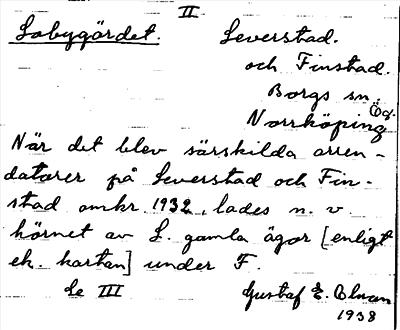 II
Sobygärdet. Severstad.
och Finstad.
Borgs sn.
Ög.
Norrköping
När det blev särskilda arren-
datorer på Severstad och Fin-
stad omkr. 1932, lades n. v
hörnet av S. gamla ägor [enligt
ek. kartan] under F.
Se III Gustaf E.
1938